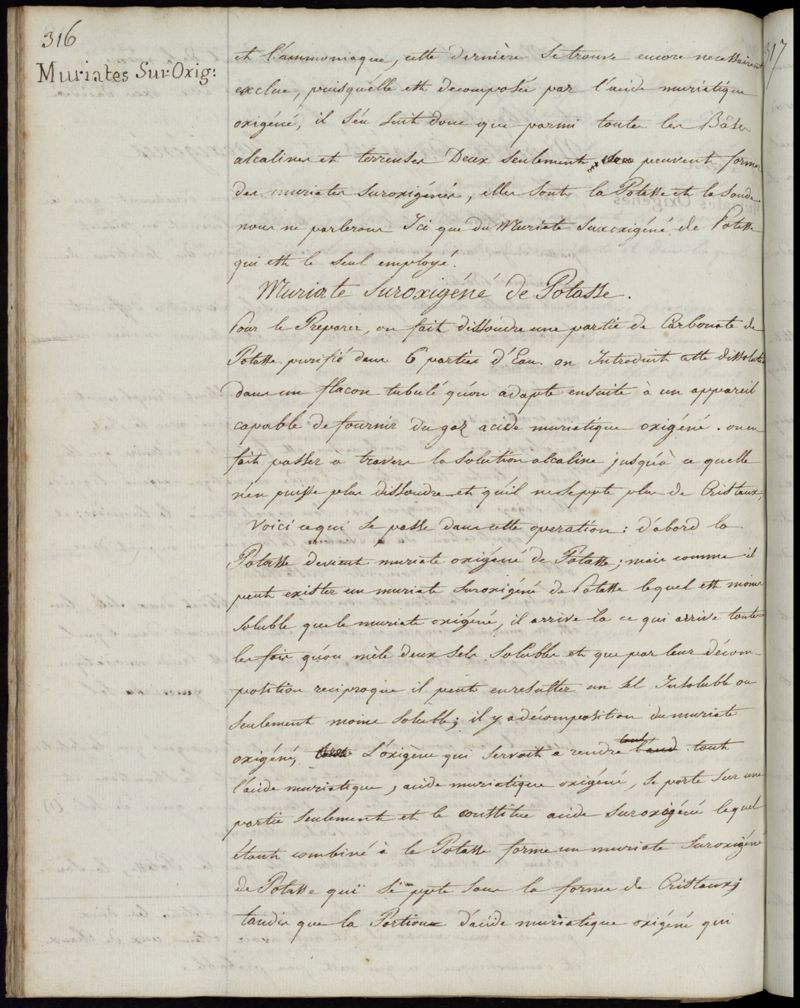 316
Muriates Sur-Oxig:
317
et l'ammoniaque, cette dernière se trouve encore necessairement
exclue, puisqu'elle est decomposée par l'acide muriatique
oxigéné, il s'en suit donc que parmi toutes les Bâses
alcalines et terreuses Deux seulement peuvent former
des muriates suroxigénés, elles sont la Potasse et la soude
nous ne parlerons Ici que du Muriate suroxigéné de Potasse
qui est le seul employé.
Muriate suroxigéné de Potasse.
Pour le Preparer, on fait dissoudre une partie de Carbonate de
Potasse purifié dans 6 parties d'Eau. on Introduit cette dissolution
dans un flacon tubulé qu'on adapte ensuite à un appareil
capable de fournir du gaz acide muriatique oxigéné. on en
fait passer a travers la solution alcaline jusqu'à ce quelle
n'en puisse plus dissoudre et qu'il ne se ppte plus de Cristaux,
Voici ce qui se passe dans cette operation: d'abord la
Potasse devient muriate oxigéné de Potasse; mais comme il
peut exister un muriate suroxigéné de Potasse lequel est moins
soluble que le muriate oxigéné, il arrive la ce qui arrive toutes
les fois qu'on mêle deux sels solubles et que par leur décom-
position reciproque il peut en resulter un sel Insoluble ou
seulement moins soluble; il y a décomposition du muriate
oxigéné, L'oxigène qui servoit a rendre tout
l'acide muriatique, acide muriatique oxigéné, se porte sur une
partie seulement et le constitue acide suroxigéné lequel
étant combiné à la Potasse forme un muriate suroxigéné
de Potasse qui se ppte sous la forme de Cristaux;
tandis que la Portion d'acide muriatique oxigéné qui